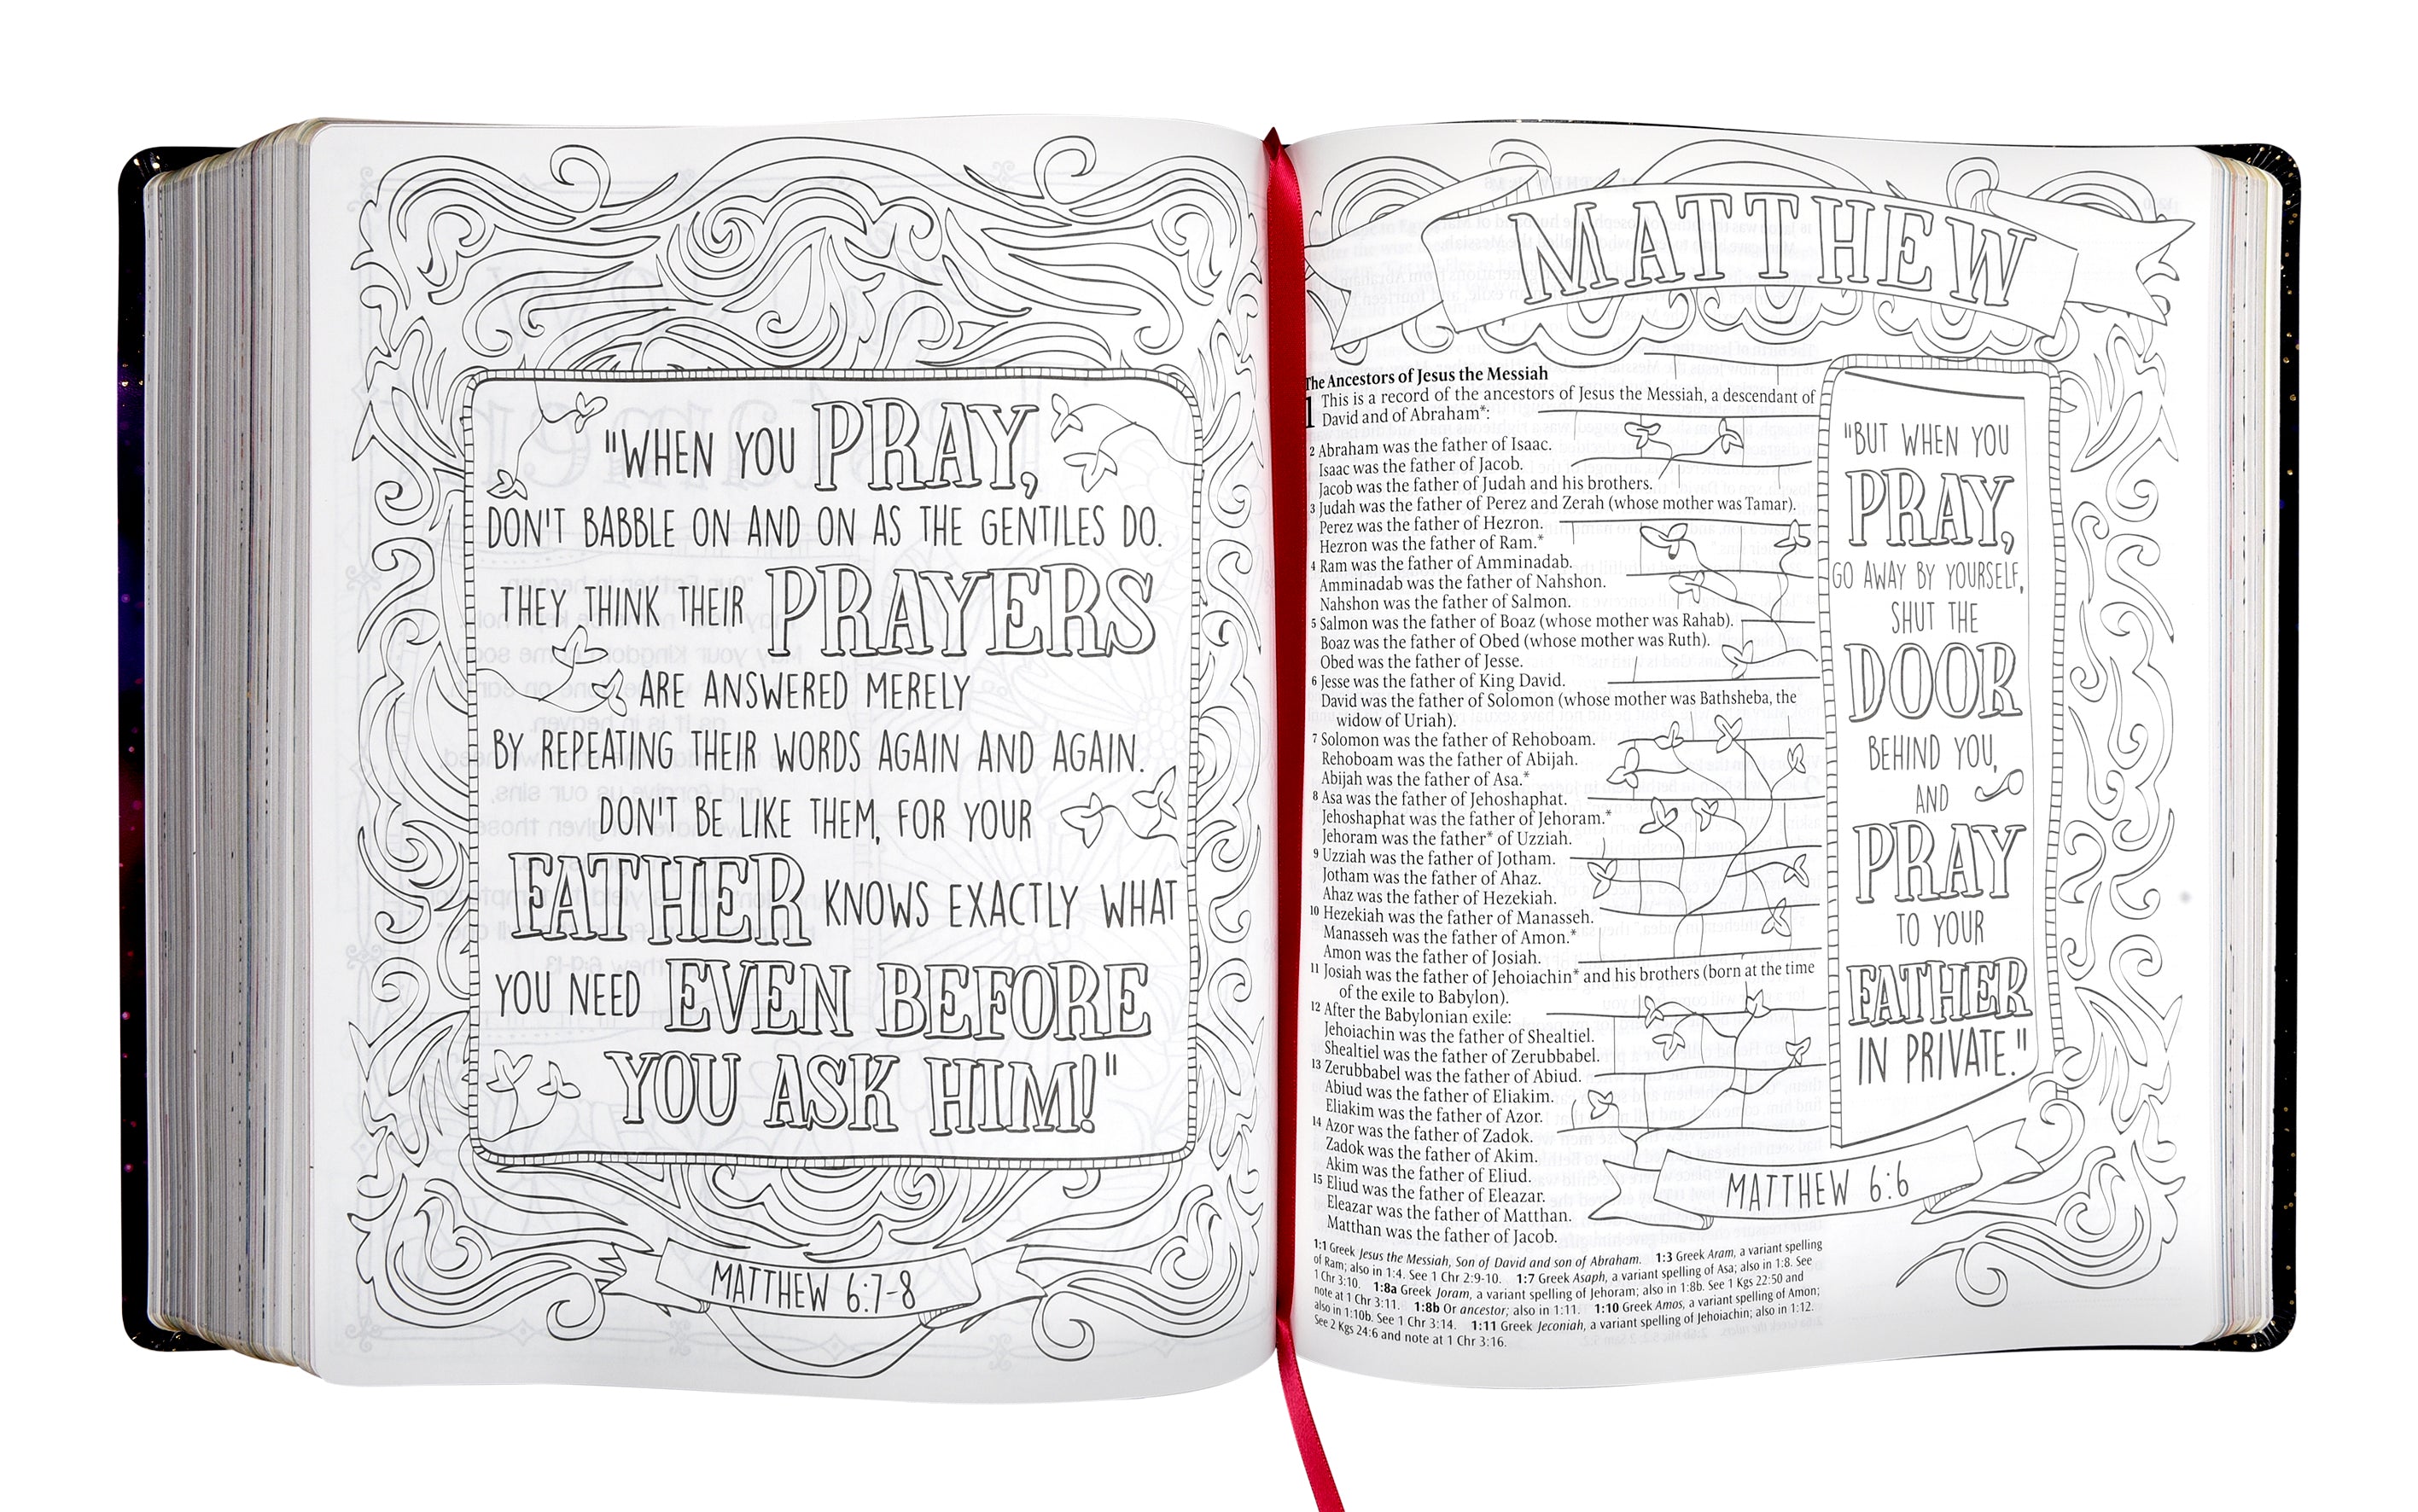 "WHEN YOU PRAY,
DON'T BABBLE ON AND ON AS THE GENTILES DO.
THEY THINK THEIR PRAYERS
ARE ANSWERED MERELY
BY REPEATING THEIR WORDS AGAIN AND AGAIN.
DON'T BE LIKE THEM, FOR YOUR
FATHER KNOWS EXACTLY WHAT
YOU NEED EVEN BEFORE
YOU ASK HIM!"
MATTHEW 6:7-8
MATTHEW
The Ancestors of Jesus the Messiah
1 This is a record of the ancestors of Jesus the Messiah, a descendant of
David and of Abraham*:
2 Abraham was the father of Isaac.
Isaac was the father of Jacob.
Jacob was the father of Judah and his brothers.
3 Judah was the father of Perez and Zerah (whose mother was Tamar).
Perez was the father of Hezron.
Hezron was the father of Ram.*
4 Ram was the father of Amminadab.
Amminadab was the father of Nahshon.
Nahshon was the father of Salmon.
5 Salmon was the father of Boaz (whose mother was Rahab).
Boaz was the father of Obed (whose mother was Ruth).
Obed was the father of Jesse.
6 Jesse was the father of King David.
David was the father of Solomon (whose mother was Bathsheba, the
widow of Uriah).
7 Solomon was the father of Rehoboam.
Rehoboam was the father of Abijah.
Abijah was the father of Asa.*
8 Asa was the father of Jehoshaphat.
Jehoshaphat was the father of Jehoram.*
Jehoram was the father* of Uzziah.
9 Uzziah was the father of Jotham.
Jotham was the father of Ahaz.
Ahaz was the father of Hezekiah.
10 Hezekiah was the father of Manasseh.
Manasseh was the father of Amon.*
Amon was the father of Josiah.
11 Josiah was the father of Jehoiachin* and his brothers (born at the time
of the exile to Babylon).
12 After the Babylonian exile:
Jehoiachin was the father of Shealtiel.
Shealtiel was the father of Zerubbabel.
13 Zerubbabel was the father of Abiud.
Abiud was the father of Eliakim.
Eliakim was the father of Azor.
14 Azor was the father of Zadok.
Zadok was the father of Akim.
Akim was the father of Eliud.
15 Eliud was the father of Eleazar.
Eleazar was the father of Matthan.
Matthan was the father of Jacob.
1:1 Greek Jesus the Messiah, Son of David and son of Abraham. 1:3 Greek Aram, a variant spelling
of Ram; also in 1:4. See 1 Chr 2:9-10. 1:7 Greek Asaph, a variant spelling of Asa; also in 1:8. See
1 Chr 3:10. 1:8a Greek Joram, a variant spelling of Jehoram; also in 1:8b. See 1 Kgs 22:50 and
note at 1 Chr 3:11. 1:8b Or ancestor; also in 1:11. 1:10 Greek Amos, a variant spelling of Amon;
also in 1:10b. See 1 Chr 3:14. 1:11 Greek Jeconiah, a variant spelling of Jehoiachin; also in 1:12.
See 2 Kgs 24:6 and note at 1 Chr 3:16.
"BUT WHEN YOU
PRAY,
GO AWAY BY YOURSELF,
SHUT THE
DOOR
BEHIND YOU,
AND
PRAY
TO YOUR
FATHER
IN PRIVATE."
MATTHEW 6:6